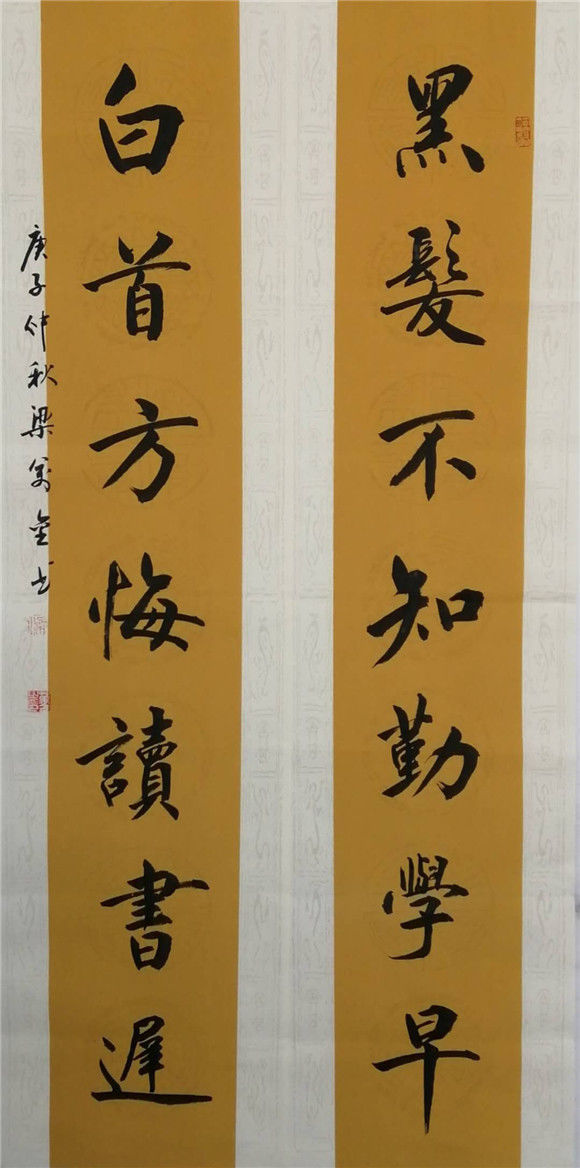 黑髮不知勤學早
白首方悔讀書遲
庚子仲秋梁萬金书